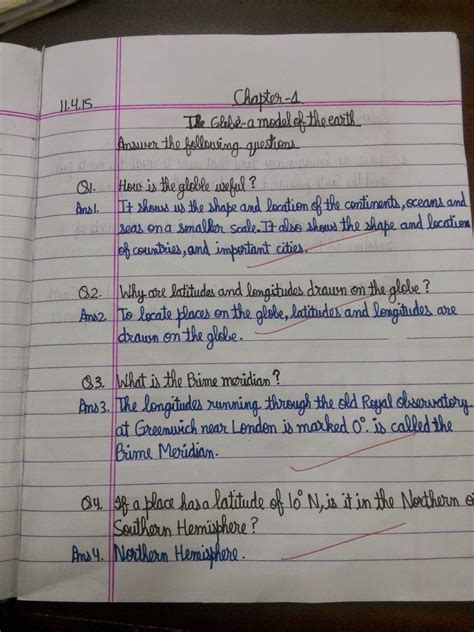 11.4.15
Chapter-1
The Globe-a model of the earth
Answer the following questions
Q1. How is the globle useful?
Ans1. It shows us the shape and location of the continents, oceans and
seas on a smaller scale. It also shows the shape and location
of countries, and important cities.
Q2. Why are latitudes and longitudes drawn on the globe?
Ans2 To locate places on the globe, latitudes and longitudes are
drawn on the globe.
Q3. What is the Prime meridian?
Ans3. The longitudes running through the old Royal observatory
at Greenwich near London is marked 0°. is called the
Prime Meridian.
Q4. If a place has a latitude of 10° N, is it in the Northern o
Southern Hemisphere?
Ans4. Northern Hemisphere.